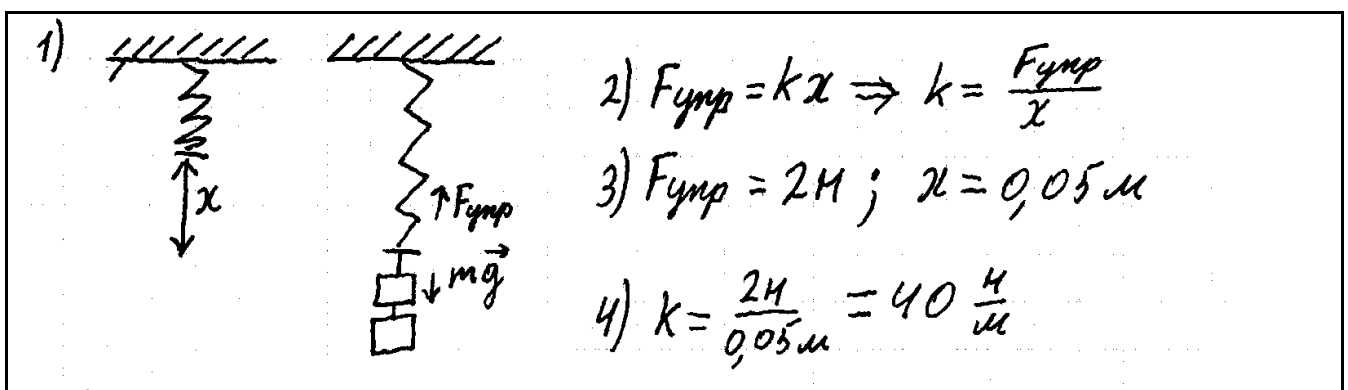 1)
x
Fупр
mg⃗
2) Fупр = kx ⇒ k = Fупр / x
3) Fупр = 2Н ; x = 0,05 м
4) k = 2Н / 0,05м = 40 Н/м